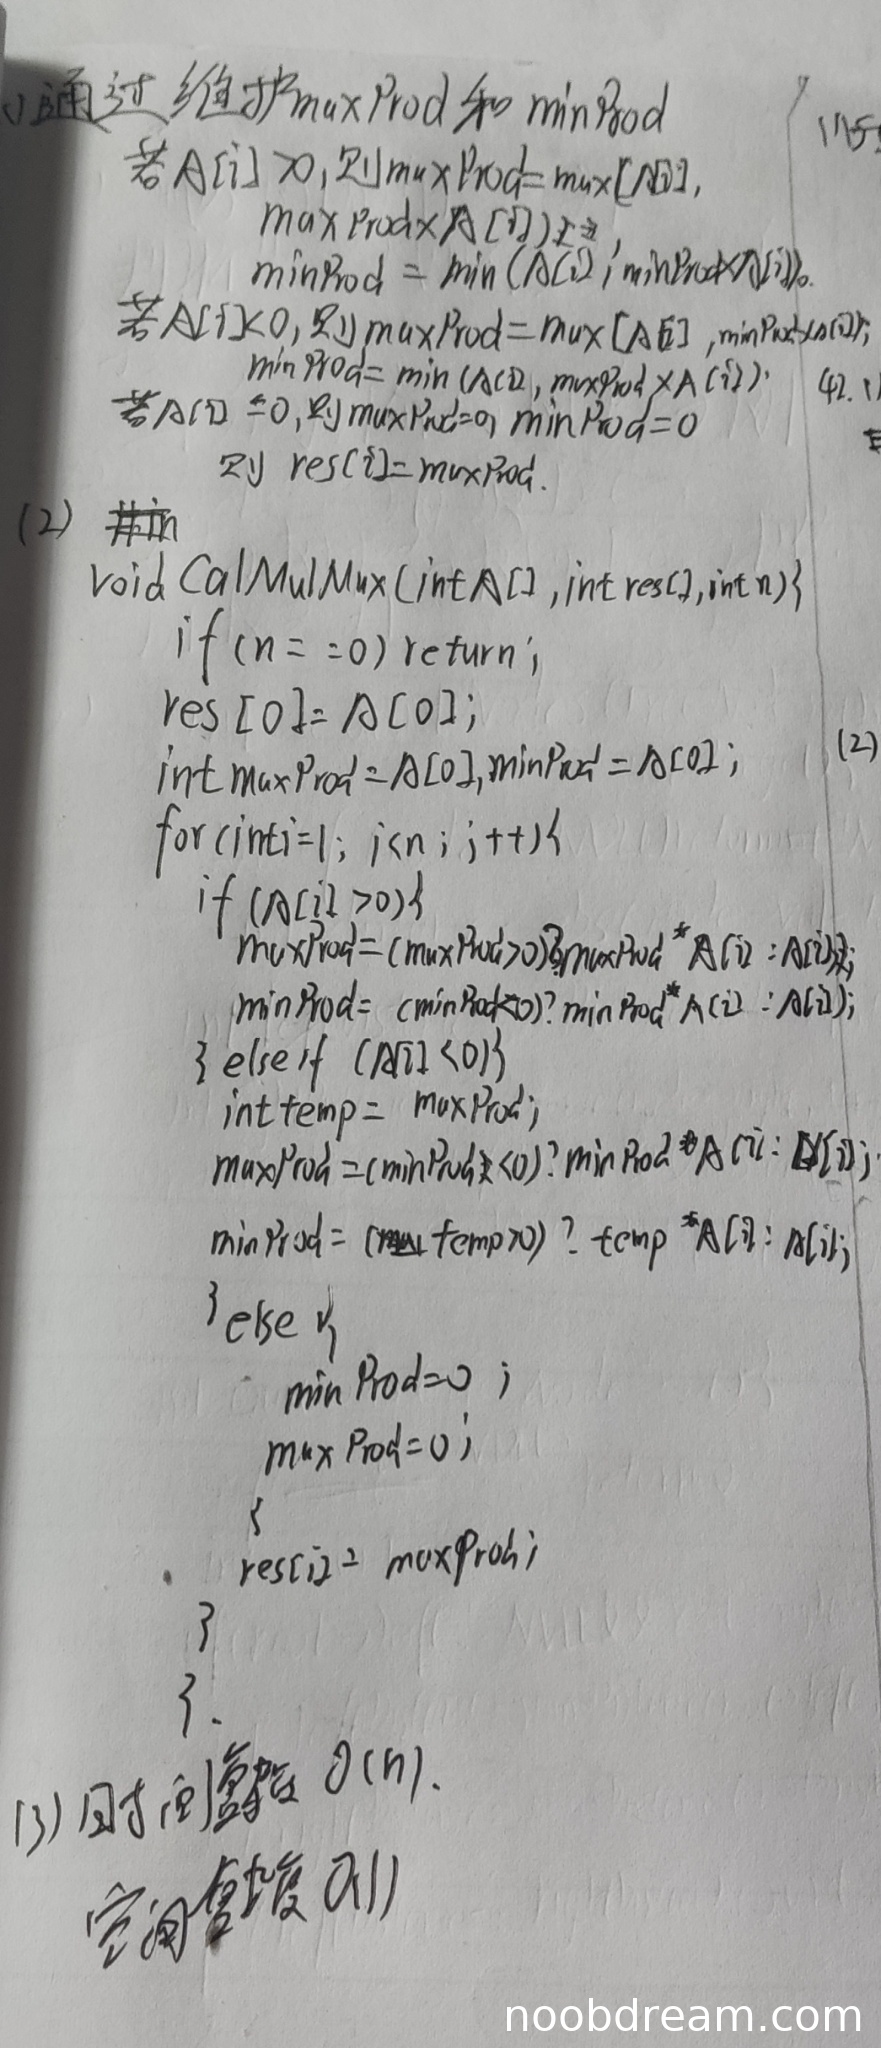 1)通过维护maxProd和minProd
若A[i]>0,则maxProd=max[A[i],
maxProd×A[i]),
minProd = min(A[i], minProd×A[i])。
若A[i]<0,则maxProd=max[A[i],minProd×A[i]);
minProd= min(A[i], maxProd×A[i]).
若A[i]=0,则maxProd=0, minProd=0
则 res[i]=maxProd.
(2)
void CalMulMax(int A[],int res[],int n){
if(n==0) return;
res[0]=A[0];
int maxProd=A[0],minProd=A[0];
for(int i=1; i<n; i++){
if(A[i]>0){
maxProd=(maxProd>0)?maxProd*A[i]:A[i];
minProd= (minProd<0)?minProd*A[i]:A[i];
} else if (A[i]<0){
int temp= maxProd;
maxProd=(minProd<0)?minProd*A[i]:A[i];
minProd=(temp>0)? temp*A[i]:A[i];
} else {
minProd=0;
maxProd=0;
{
res[i]= maxProd;
}
}.
(3)时间复杂度 O(n).
空间复杂度 O(1)
1)
42. 1)
(2)
noobdream.com